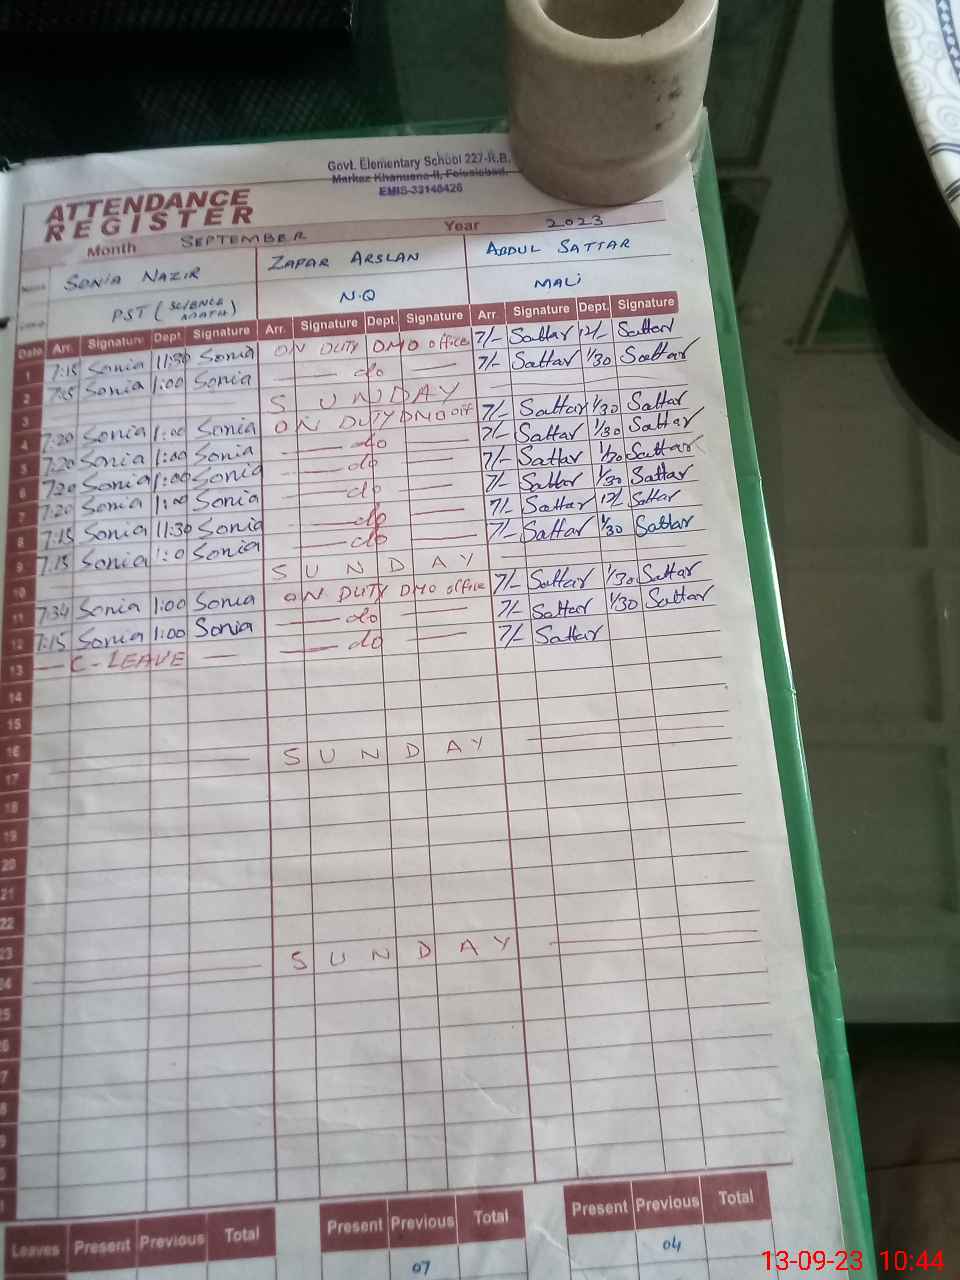 Govt. Elementary School 227-R.B.
Markaz Khanuana-II, Faisalabad.
EMIS-33140426
ATTENDANCE
REGISTER
Month SEPTEMBER Year 2023
SONIA NAZIR ZAFAR ARSLAN ABDUL SATTAR
PST (SCIENCE MATH) N.Q MALI
Date Arr. Signature Dept. Signature Arr. Signature Dept. Signature Arr. Signature Dept. Signature
1 7:15 Sonia 11:30 Sonia ON DUTY DMO office 7/- Sattar 12/- Sattar
2 7:15 Sonia 1:00 Sonia do 7/- Sattar 1/30 Sattar
3 SUNDAY
4 7:20 Sonia 1:00 Sonia ON DUTY DMO off 7/- Sattar 1/30 Sattar
5 7:20 Sonia 1:00 Sonia do 7/- Sattar 1/30 Sattar
6 7:20 Sonia 1:00 Sonia do 7/- Sattar 1/30 Sattar
7 7:20 Sonia 1:00 Sonia do 7/- Sattar 1/30 Sattar
8 7:15 Sonia 11:30 Sonia do 7/- Sattar 12/- Sattar
9 7:15 Sonia 1:0 Sonia do 7/- Sattar 1/30 Sattar
10 SUNDAY
11 7:34 Sonia 1:00 Sonia ON DUTY DMO office 7/- Sattar 1/30 Sattar
12 7:15 Sonia 1:00 Sonia do 7/- Sattar 1/30 Sattar
13 C-LEAVE do 7/- Sattar
14
15
16
SUNDAY
17
18
19
20
21
22
23
SUNDAY
Leaves Present Previous Total Present Previous Total Present Previous Total
07 04
13-09-23 10:44